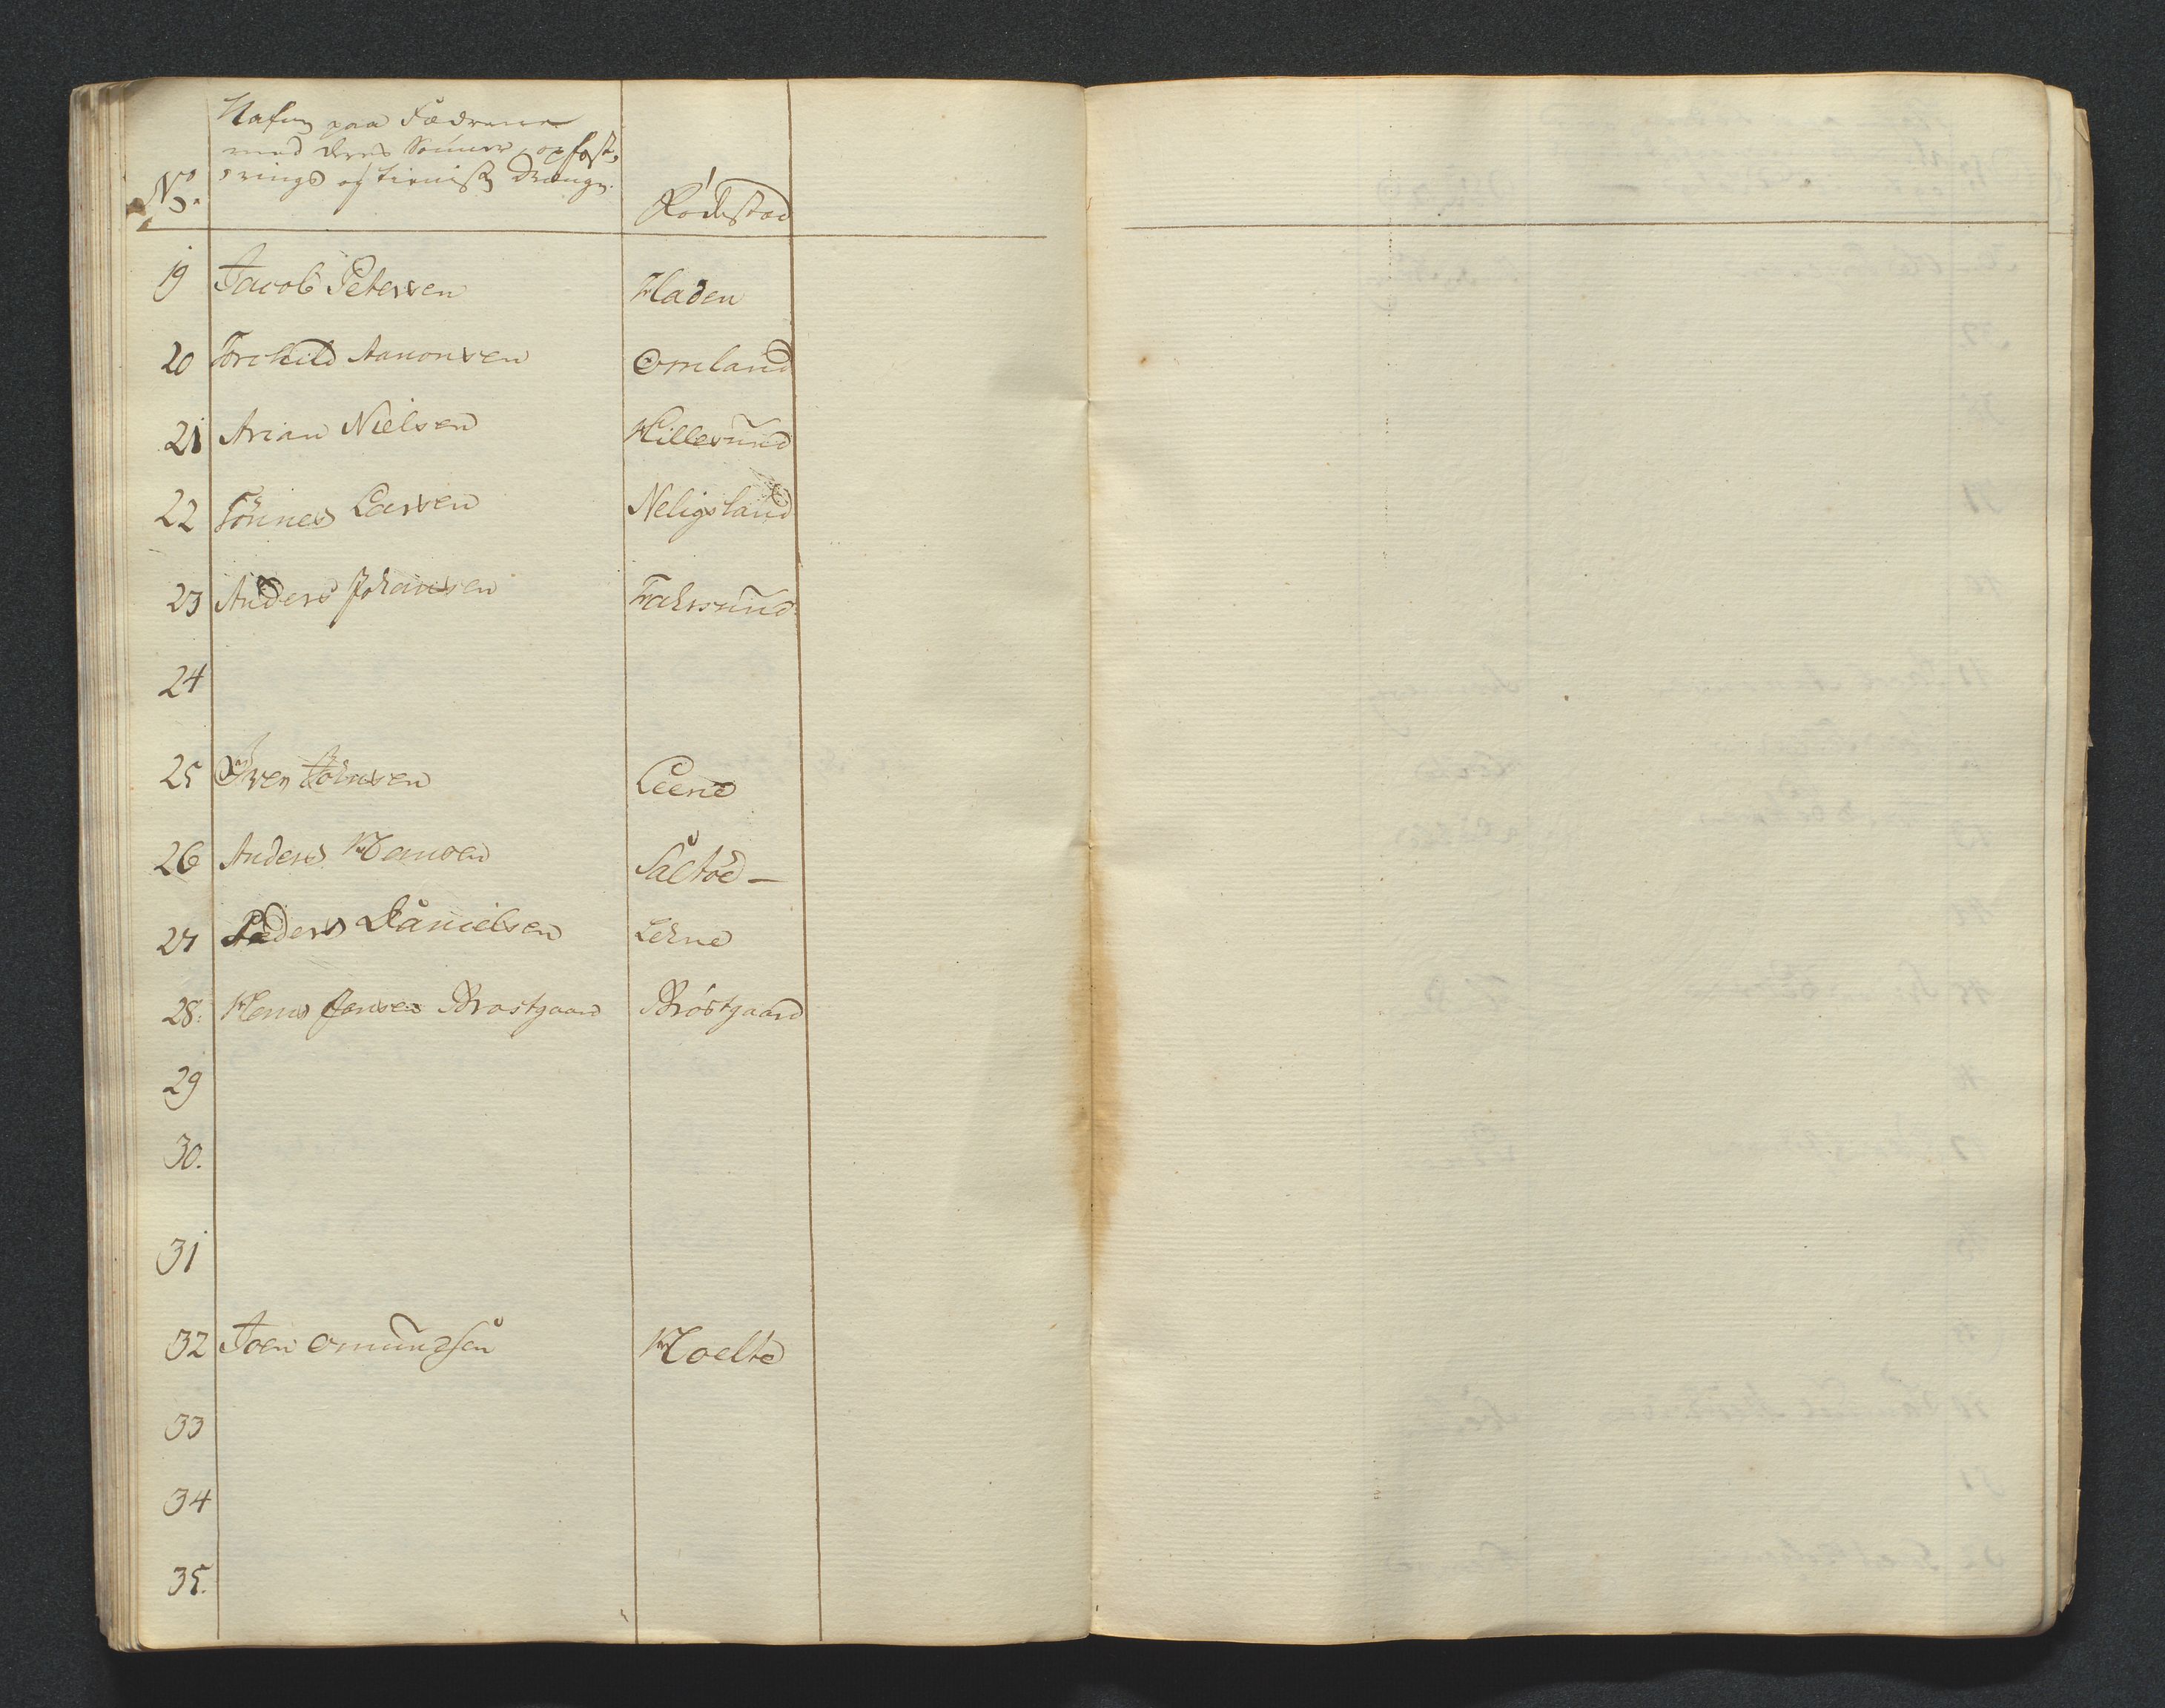 Nafn paa Fædrene
med deres Sönner, opfost,
No. rings og tieniste Drenge. Födestad
19 Jacob Petersen Huaden
20 Torckild Aanonsen Omland
21 Arian Nielsen Hillesund
22 Tönnes Larsen Neligsland
23 Anders Johansen Fahrsund
24
25 Iven Johnsen Leene
26 Anders Hansen Saltöe -
27 Peders Danielsen Lehne
28: Hans Jensen Brostgaard Bröstgaard
29
30.
31
32 Joen Omundsen Hoelte
33
34
35.